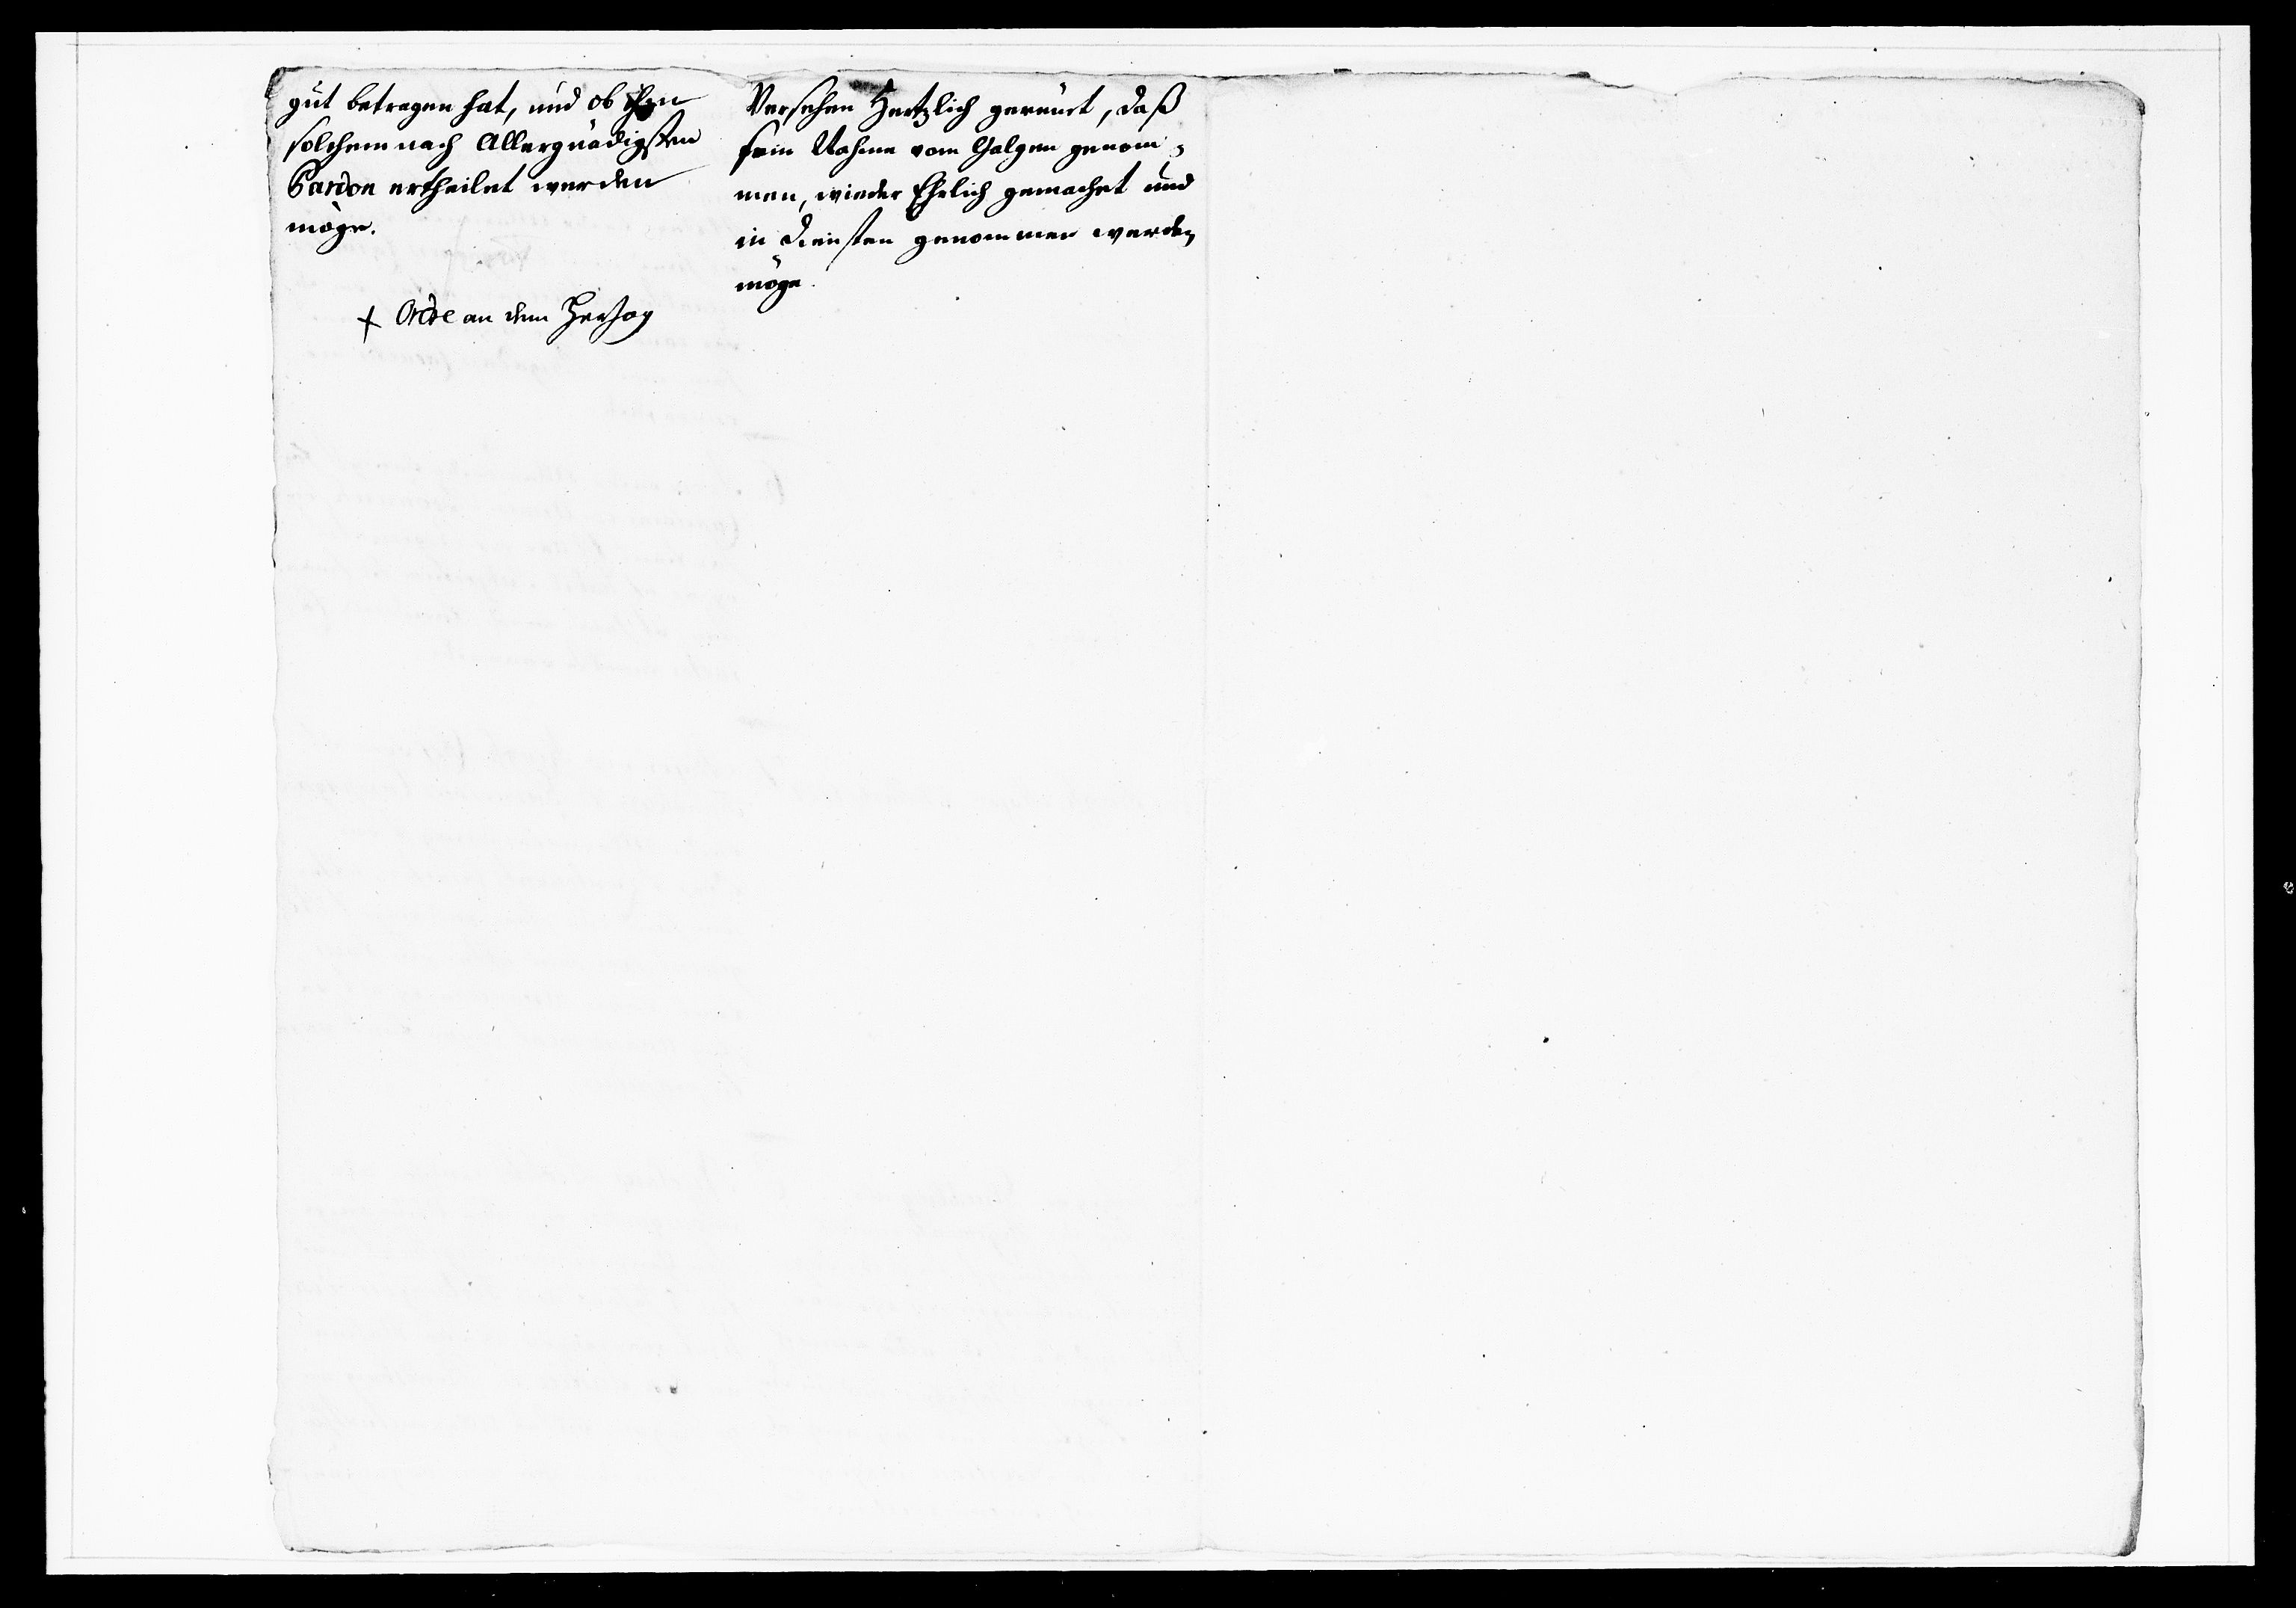 gut betragen hat, und ob ihm
solchemnach Allergnädigsten
Pardon ertheilet werden
möge.
+ Ordre an dem Hertzog
Versehen Hertzlich gereuet, daß
sein Nahme vom Galgen genom-
men, wieder Ehrlich gemachet und
in diensten genommen werden
möge.